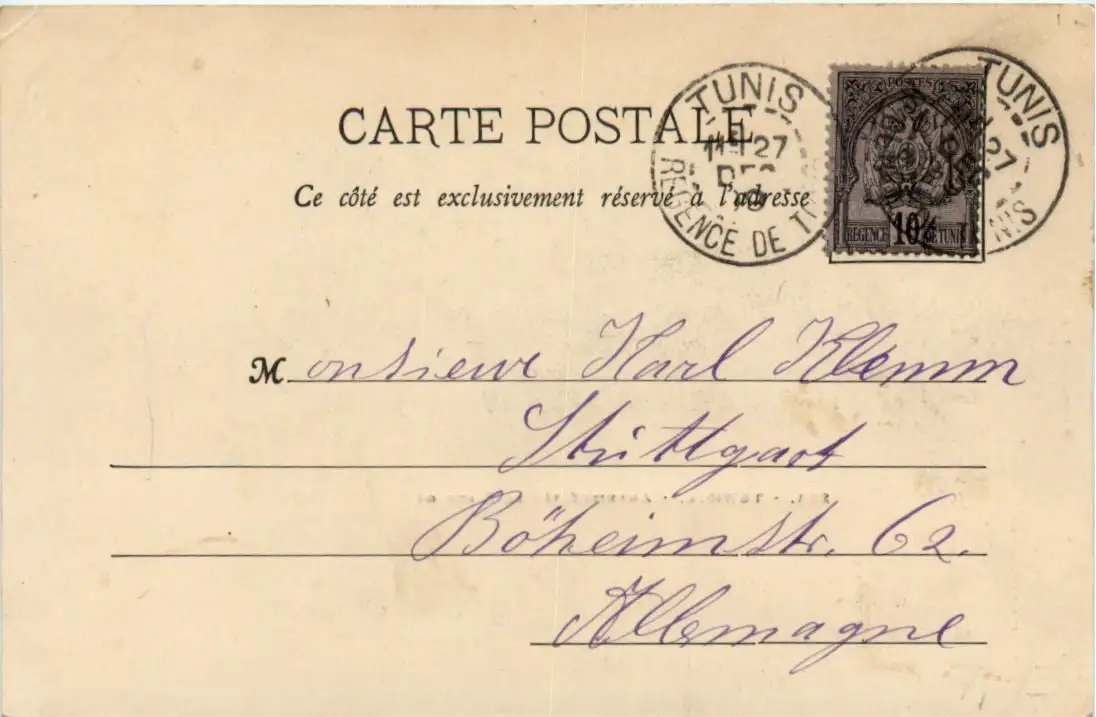 CARTE POSTALE
Ce côté est exclusivement réservé à l'adresse
TUNIS
27
REGENCE DE
POSTES
REGENCE 10 DE TUNIS
TUNIS
27
Monsieur Karl Klemm
Stuttgart
Böheimstr. 62.
Allemagne